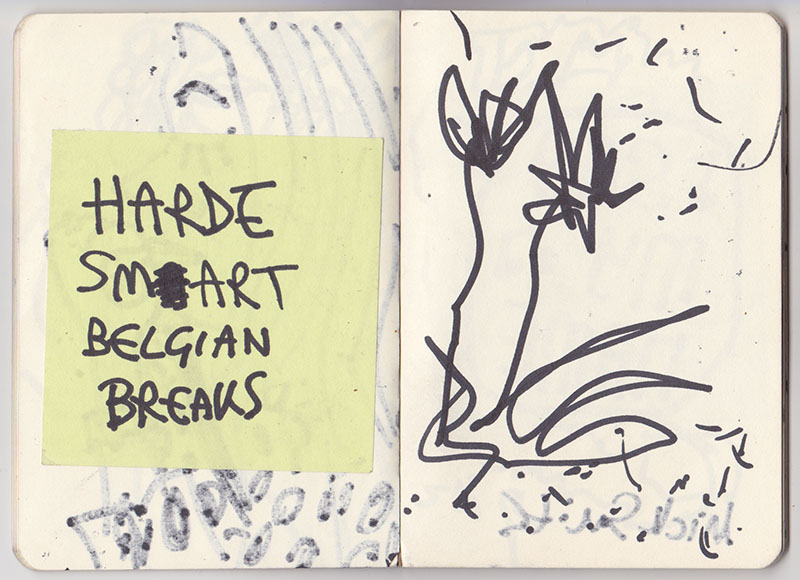 HARDE
SMART
BELGIAN
BREAKS